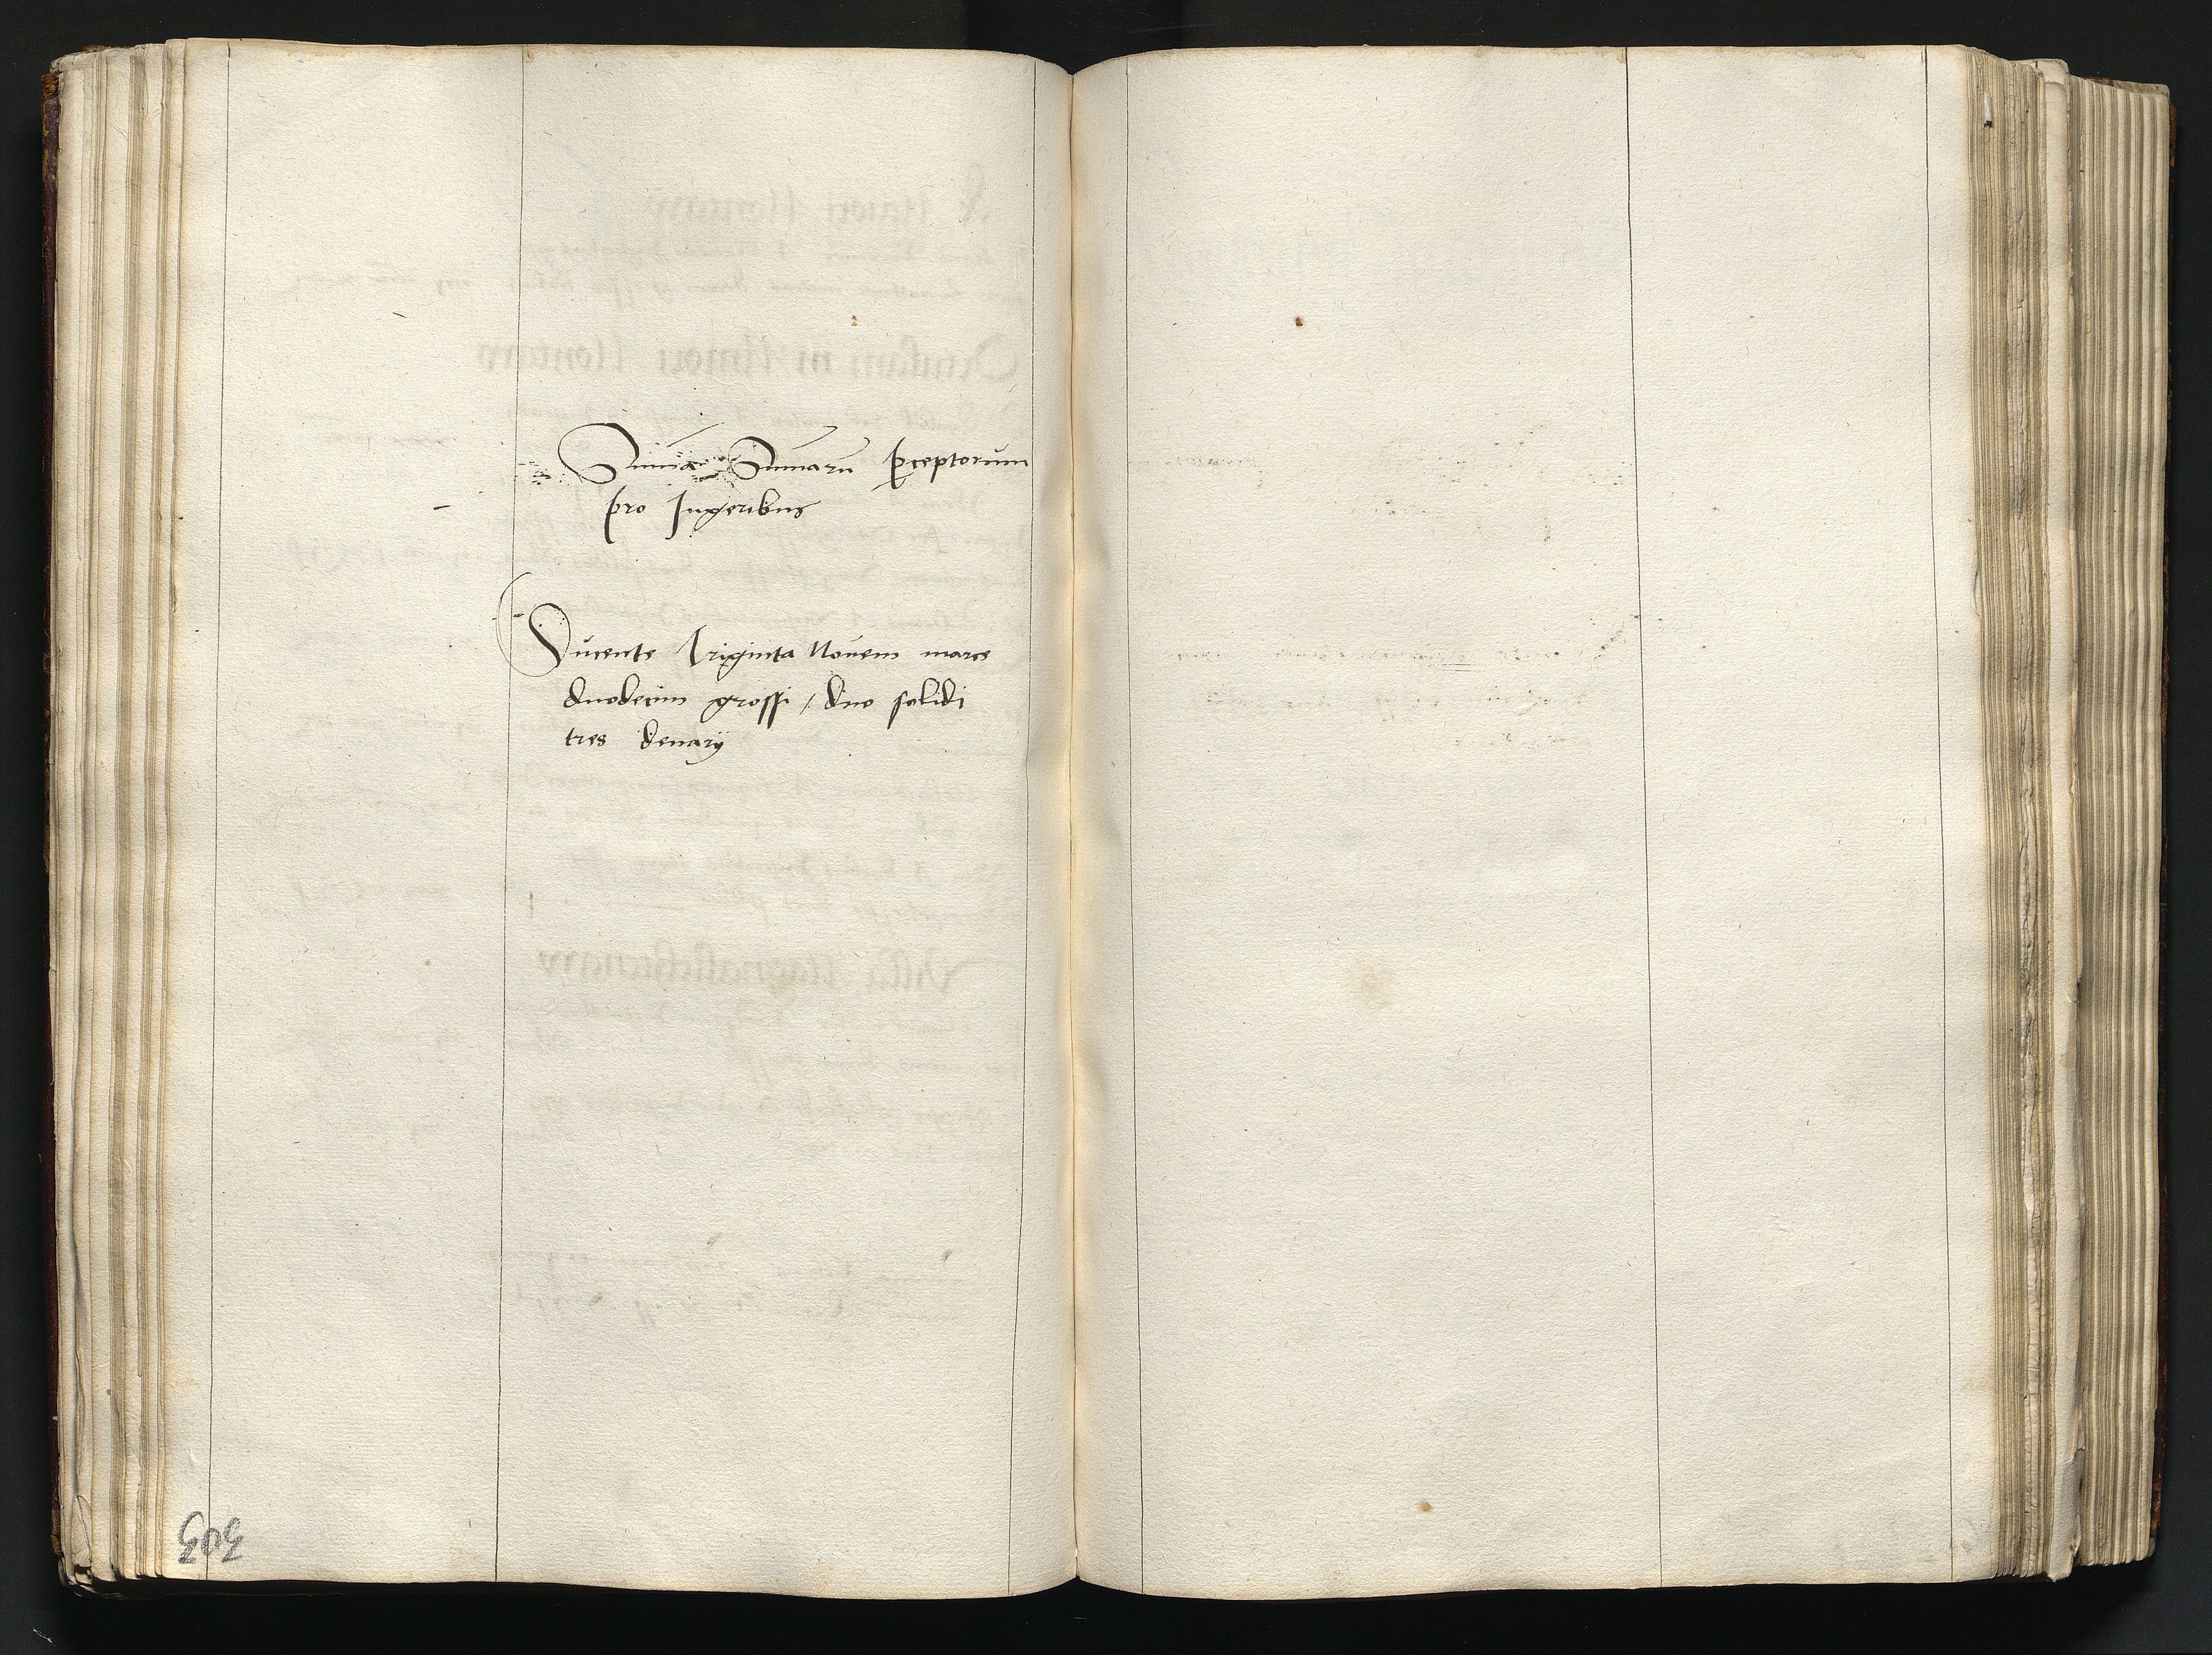 Sum̄a Sum̄arū ꝑceptorum
pro Jugeribus
Ducente Triginta Nouem marce
duodecim grossi / duo solidi
tres denarij
303